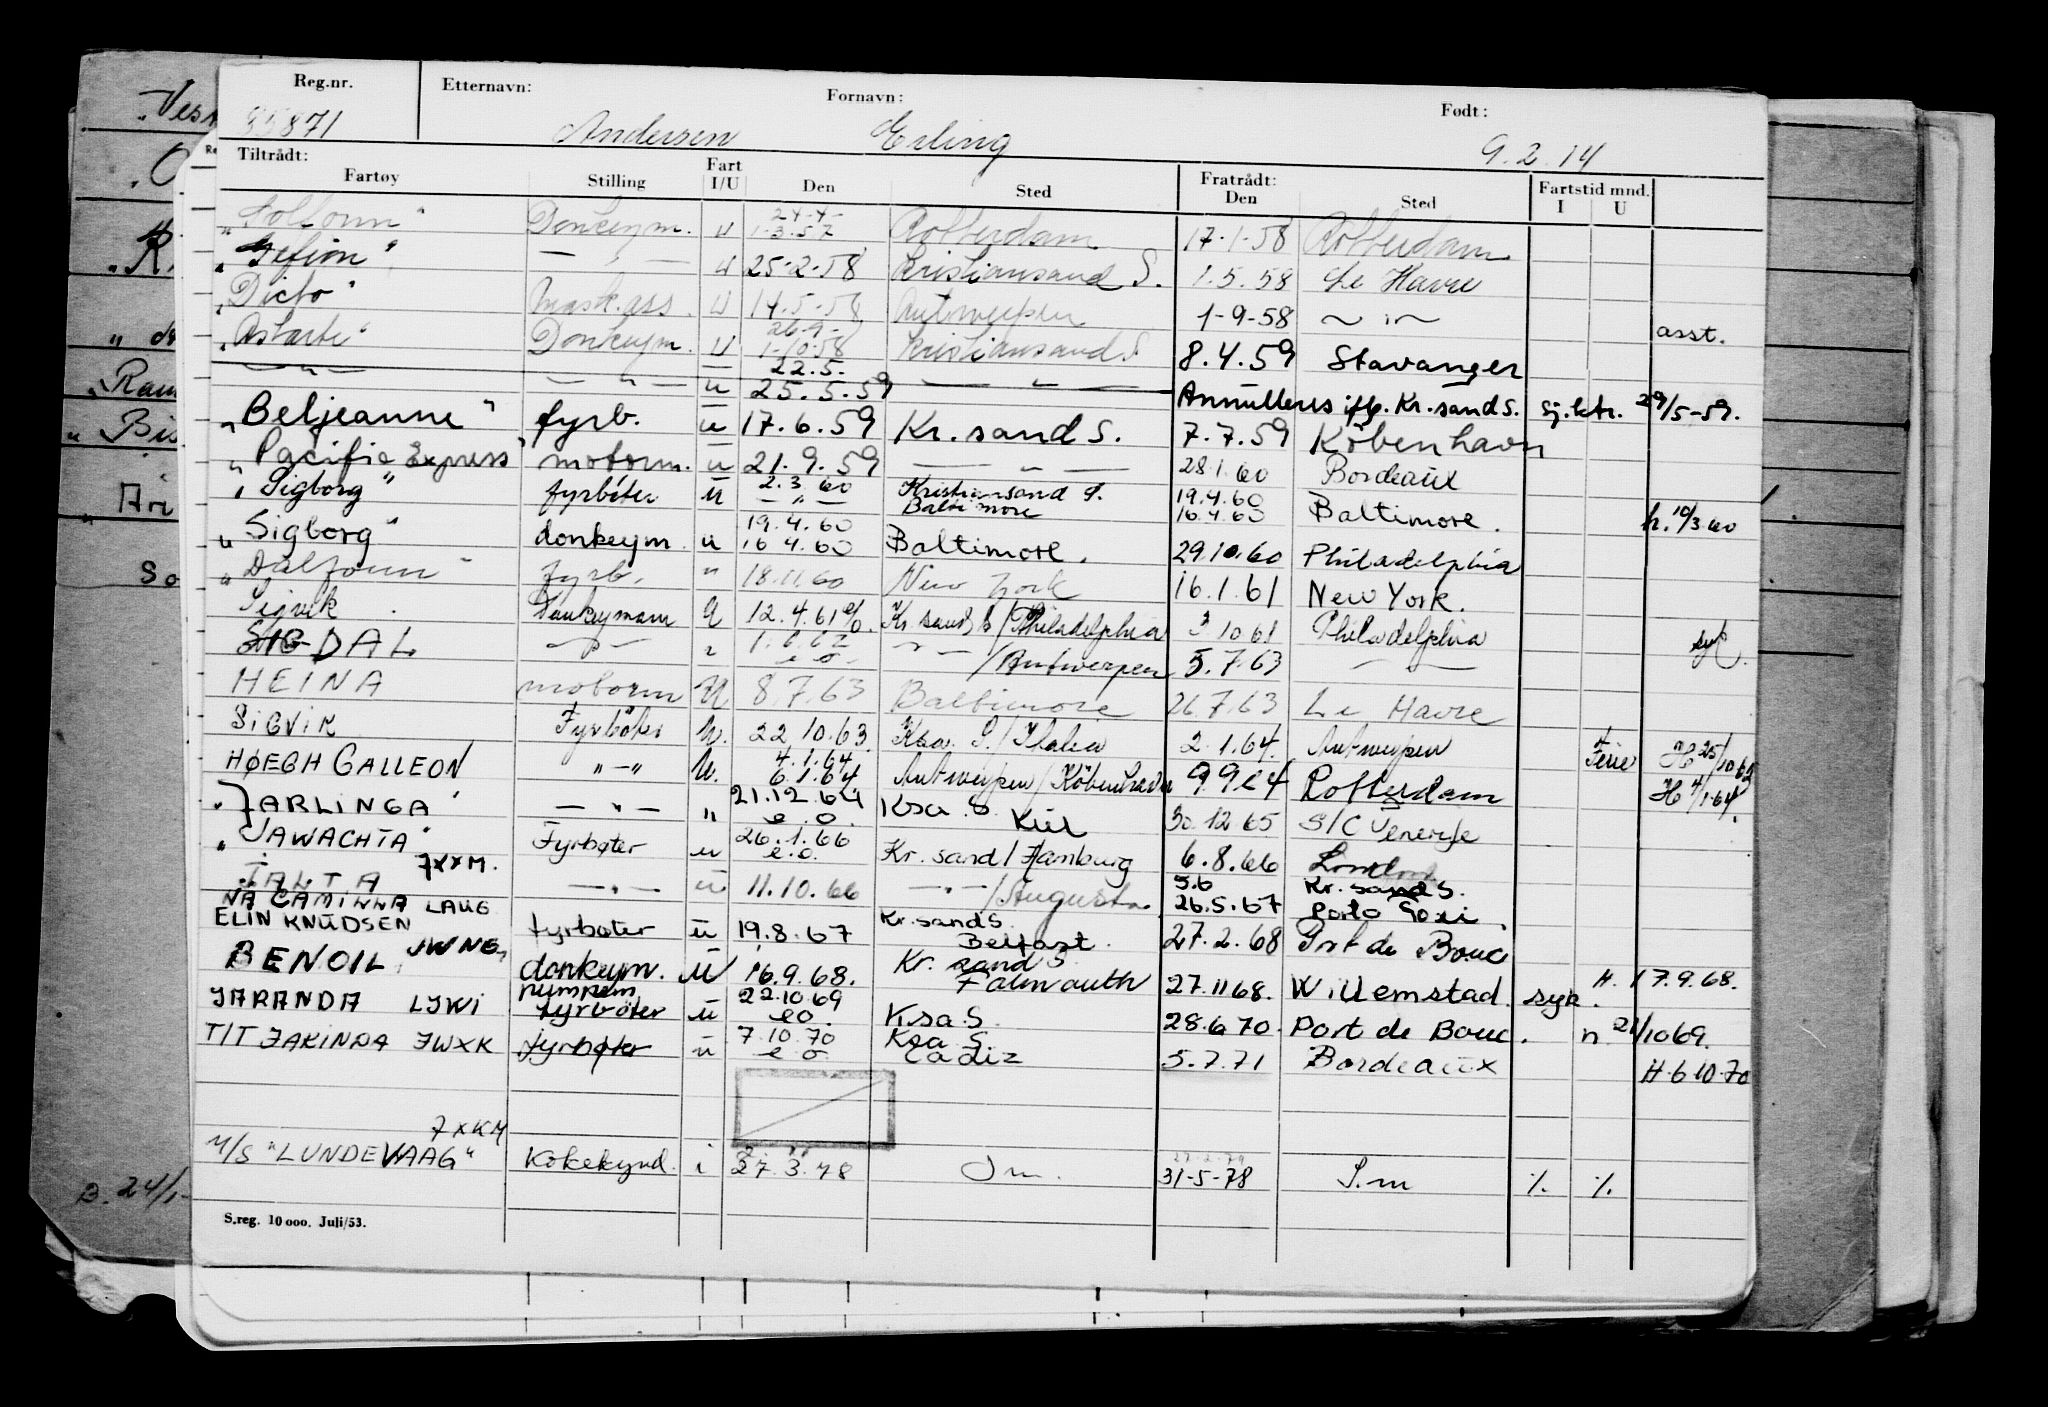 Reg.nr. Etternavn: Fornavn: Født:
85871 Andersen Erling 9.2.14
Tiltrådt: Fart Fratrådt: Fartstid mnd.
Fartøy Stilling I/U Den Sted Den Sted I U
24-4-
Donkeym. u 1.3.57 Rotterdam 17.1.58 Rotterdam
"Gefion" — " — u 25-2-58 Kristiansand S. 1.5.58 Le Havre
"Dicto" Mask.ass. u 14.5.58 Antwerpen 1-9-58 — " — asst.
26-9-
"Astarte" Donkeym. u 1-10.58 Kristiansand S 8.4.59 Stavanger
22.5.
— " — — " — u 25.5.59 — " — Annulleres iflg. Kr.sand S. sj.ktr. 29/5-59.
"Beljeanne" fyrb. u 17.6.59 Kr.sand S. 7.7.59 København
"Pacific Express" motorm. u 21.9.59 — " — 28.1.60 Bordeaux
"Sigborg" fyrbøter u 2.3.60 Kristiansand S. 19.4.60
— " — Baltimore 16.4.60 Baltimore. h. 10/3 60
19.4.60
"Sigborg" donkeym. u 16 4.60 Baltimore. 29.10.60 Philadelphia
"Dalfonn" fyrb. " 18.11.60 New York 16.1.61 New York.
Sigvik Donkeymann U 12.4.61 e/o. Kr.sand S / Philadelphia 3 10 61 Philadelphia syk.
SIGDAL — " — " 1.6.62
e o. — " — / Antwerpen 5.7.63 — —
HEINA motorm U 8.7.63 Baltimore 26.7.63 Le Havre
SIGVIK Fyrbøter U. 22 10.63. Ksa. S. / Italia 2.1.64. Antwerpen Ferie H 25/10 63
4.1.64
HØEGH GALLEON " — " U. 6.1.64 Antwerpen / København 9 9 64 Rotterdam H 4/1.64
21.12.64
"JARLINGA" — " — " e o. Ksa S. Kiel 30.12 65 S/C Tenerife
26.1.66
"JAWACHTA" Fyrbøter u e.o. Kr.sand / Hamburg 6.8.66 London
JXXM.
JALTA — " — u 11.10.66 — " — / Augusta 5.6 Kr.sand S.
NA CAMILLA LAUG 26.5.67 Porto Foxi.
ELIN KNUDSEN fyrbøter u 19.8.67 Kr.sand S. Belfast. 27.2.68 Port de Bouc
JWNG
BENOIL donkeym. U 16.9.68. Kr. sand S Falmouth 27.11 68. Willemstad. syk. H. 17.9.68.
pumpem 22.10 69
JARANDA LJKI fyrbøter u eo. Ksa S. 28.6 70. Port de Bouc. n 21/10 69.
7.10.70 Ksa S.
T/T JAKINDA JWXK fyrbøter u e o Cadiz 5.7.71 Bordeaux H. 6 10.70
JXKM
M/S "LUNDEVAAG" Kokekynd. i 27.3.78 Sm. 31-5-78 S.m % %
S.reg. 10 000. Juli/53.
B. 24/1-